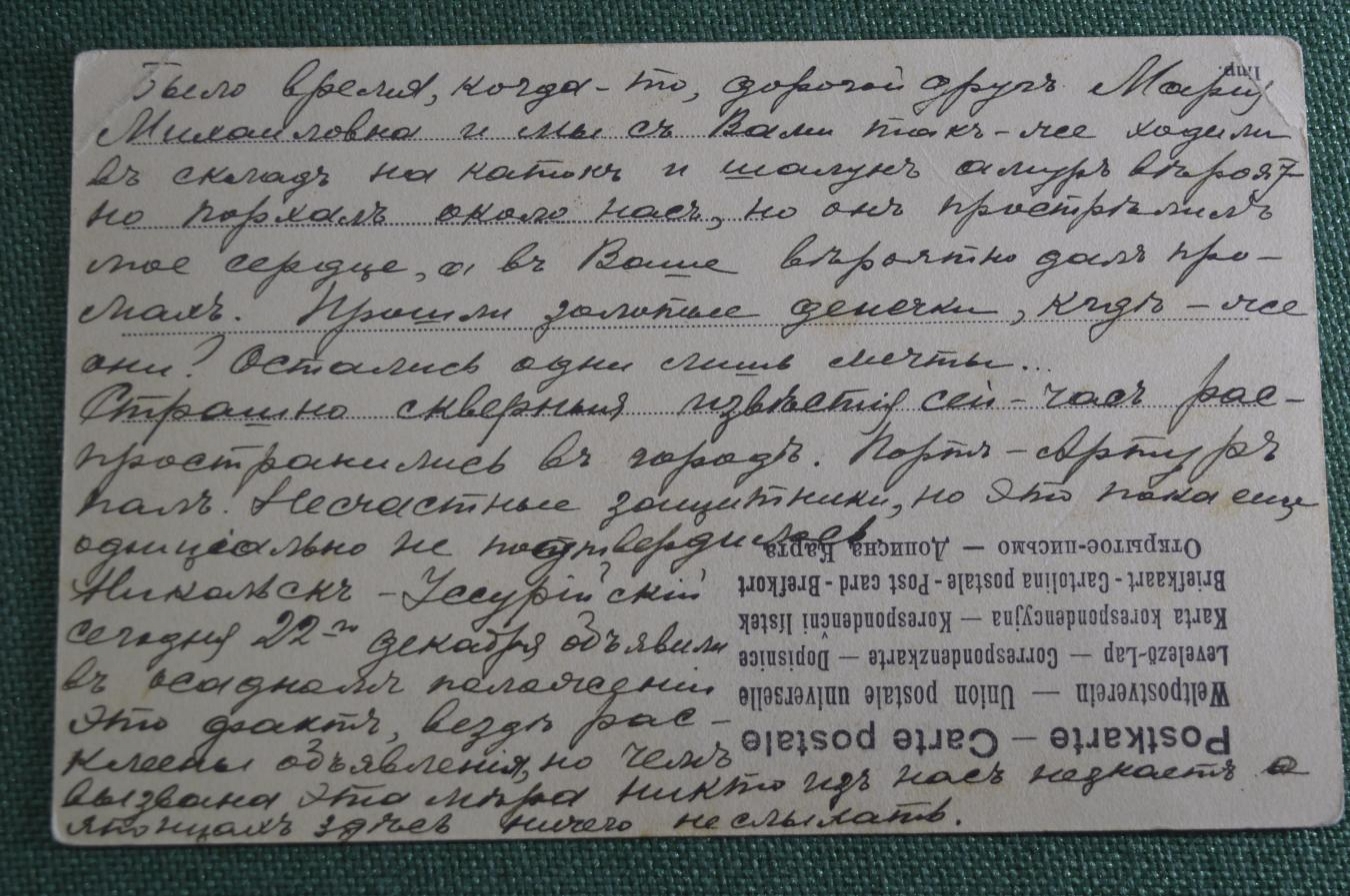 Было время, когда-то, дорогой другъ Марiя
Михаиловна и мы съ Вами такъ-же ходили
въ складъ на катокъ и шалунъ амуръ вѣроят-
но порхалъ около насъ, но онъ прострѣлилъ
мое сердце, а въ Ваше вѣроятно далъ про-
махъ. Прошли золотые денечки, къдѣ-же
они? Остались одни лишь мечты...
Страшно скверныя извѣстiя сей-часъ рас-
пространились въ городѣ. Портъ-Артуръ
палъ. Несчастные защитники, но это пока еще
офицiально не подтвердилось.
Никольскъ-Уссурiйскiй
сегодня 22го декабря объявили
въ осадномъ положенiи
это фактъ, вездѣ рас-
клеены объявленiя, но чемъ
вызвана эта мѣра никто изъ насъ незнаетъ о
японцахъ здѣсь ничего не слыхать.
Imp.
Postkarte – Carte postale
Weltpostverein — Union postale universelle
Levelező-Lap — Correspondenzkarte — Dopisnice
Karta korespondencyjna — Korespondenční lístek
Briefkaart - Cartolina postale - Post card - Brefkort
Открытое-письмо — Дописна Карта